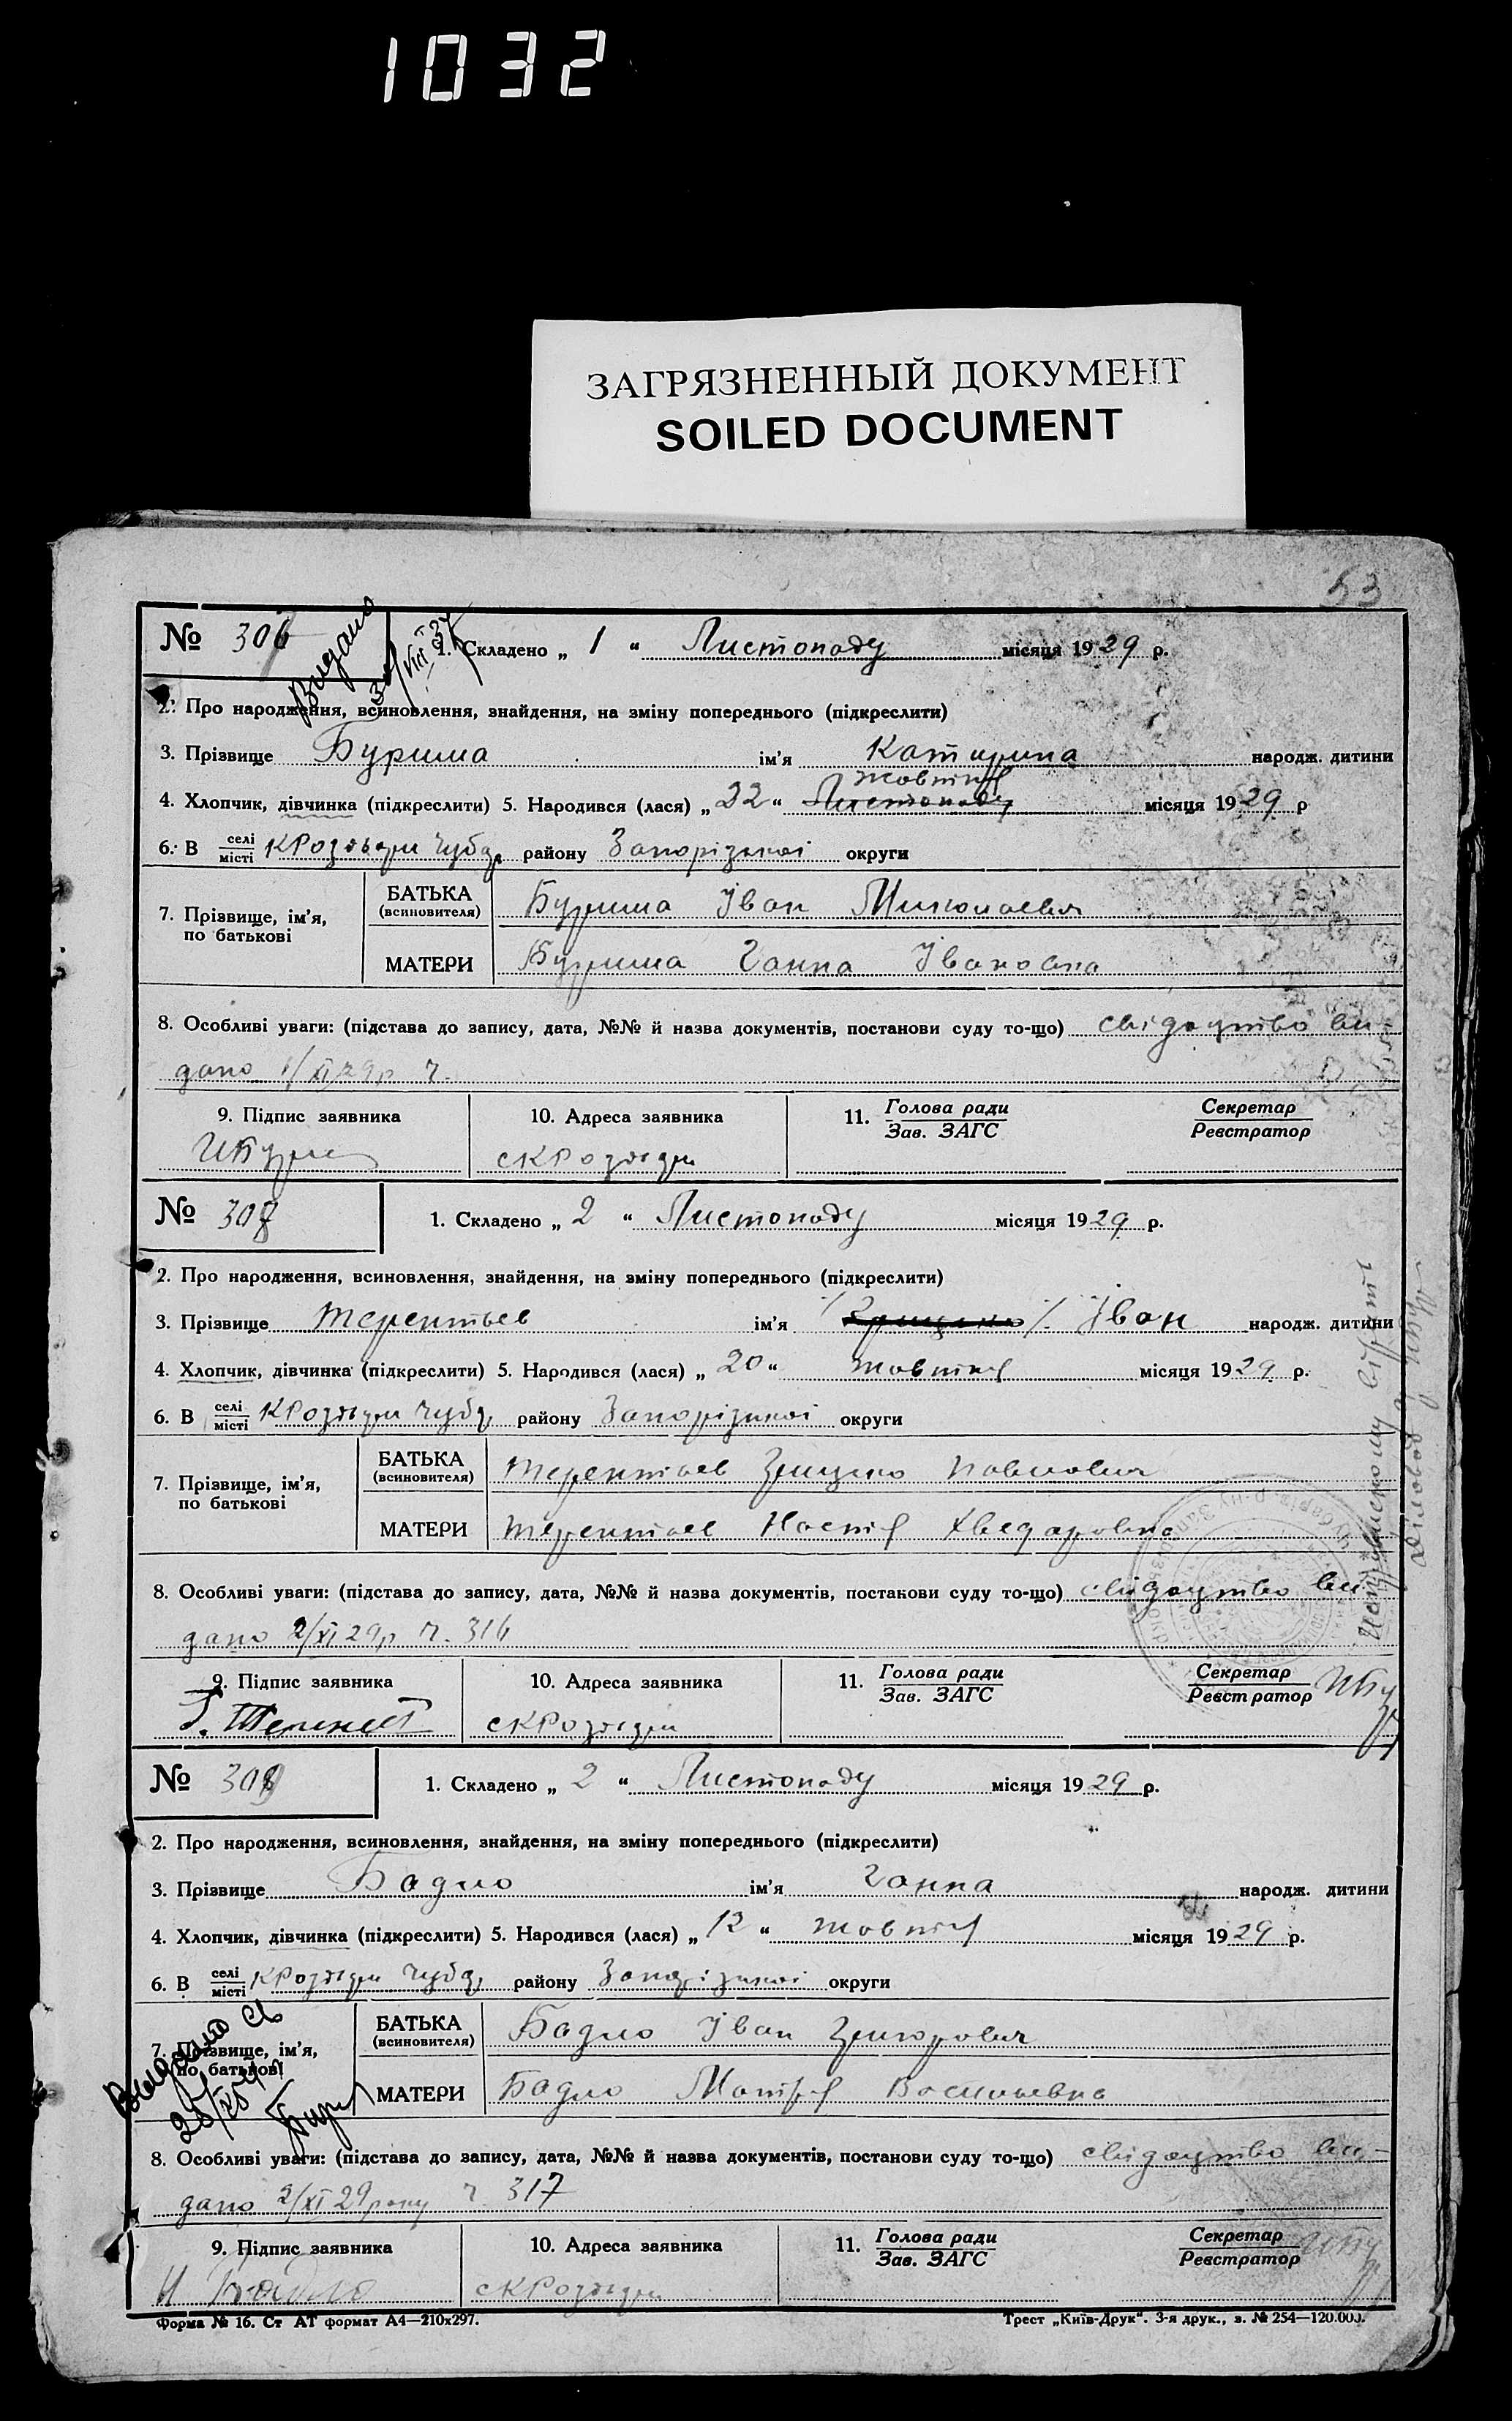 1032
ЗАГРЯЗНЕННЫЙ ДОКУМЕНТ
SOILED DOCUMENT
53
№ 307
Видано
1. Складено „ 1 “ Листопаду місяця 1929 р.
2. Про народження, всиновлення, знайдення, на зміну попереднього (підкреслити)
3. Прізвище Бурима ім’я Катирина народж. дитини
жовтня
4. Хлопчик, дівчинка (підкреслити) 5. Народився (лася) „ 22 “ Листопаду місяця 1929 р
6. В селі/місті К Роздори Чуб. району Запорізької округи
7. Прізвище, ім’я, по батькові
БАТЬКА (всиновителя) Бурима Іван Миколаєвич
МАТЕРИ Бурима Ганна Івановна
8. Особливі уваги: (підстава до запису, дата, №№ й назва документів, постанови суду то-що) свідоцтво ви-
дано 1/XI 29р ч.
9. Підпис заявника 10. Адреса заявника 11. Голова ради/Зав. ЗАГС Секретар/Реєстратор
с К Роздори
№ 308
1. Складено „ 2 “ Листопаду місяця 1929 р.
2. Про народження, всиновлення, знайдення, на зміну попереднього (підкреслити)
3. Прізвище Терентьев ім’я Іван народж. дитини
4. Хлопчик, дівчинка (підкреслити) 5. Народився (лася) „ 20 “ жовтня місяця 1929 р.
6. В селі/місті К Роздори Чуб. району Запорізької округи
7. Прізвище, ім’я, по батькові
БАТЬКА (всиновителя) Терентьев Грицко Павлович
МАТЕРИ Терентьев Настя Хведаровна
8. Особливі уваги: (підстава до запису, дата, №№ й назва документів, постакови суду то-що) свідоцтво ви-
дано 2/XI 29р ч. 316
9. Підпис заявника 10. Адреса заявника 11. Голова ради/Зав. ЗАГС Секретар/Реєстратор
с К Роздори
№ 309
1. Складено „ 2 “ Листопаду місяця 1929 р.
2. Про народження, всиновлення, знайдення, на зміну попереднього (підкреслити)
3. Прізвище Бадло ім’я Ганна народж. дитини
4. Хлопчик, дівчинка (підкреслити) 5. Народився (лася) „ 12 “ жовтня місяця 1929 р.
6. В селі/місті К Роздори Чуб. району Запорізької округи
7. Прізвище, ім’я, по батькові
БАТЬКА (всиновителя) Бадло Іван Григорович
МАТЕРИ Бадло Мотря Васильевна
8. Особливі уваги: (підстава до запису, дата, №№ й назва документів, постанови суду то-що) свідоцтво ви-
дано 2/XI 29року ч. 317
9. Підпис заявника 10. Адреса заявника 11. Голова ради/Зав. ЗАГС Секретар/Реєстратор
с К Роздори
Форма № 16. Ст АТ формат А4—210х297.
Трест „Київ-Друк“. 3-я друк., з. № 254—120.000.